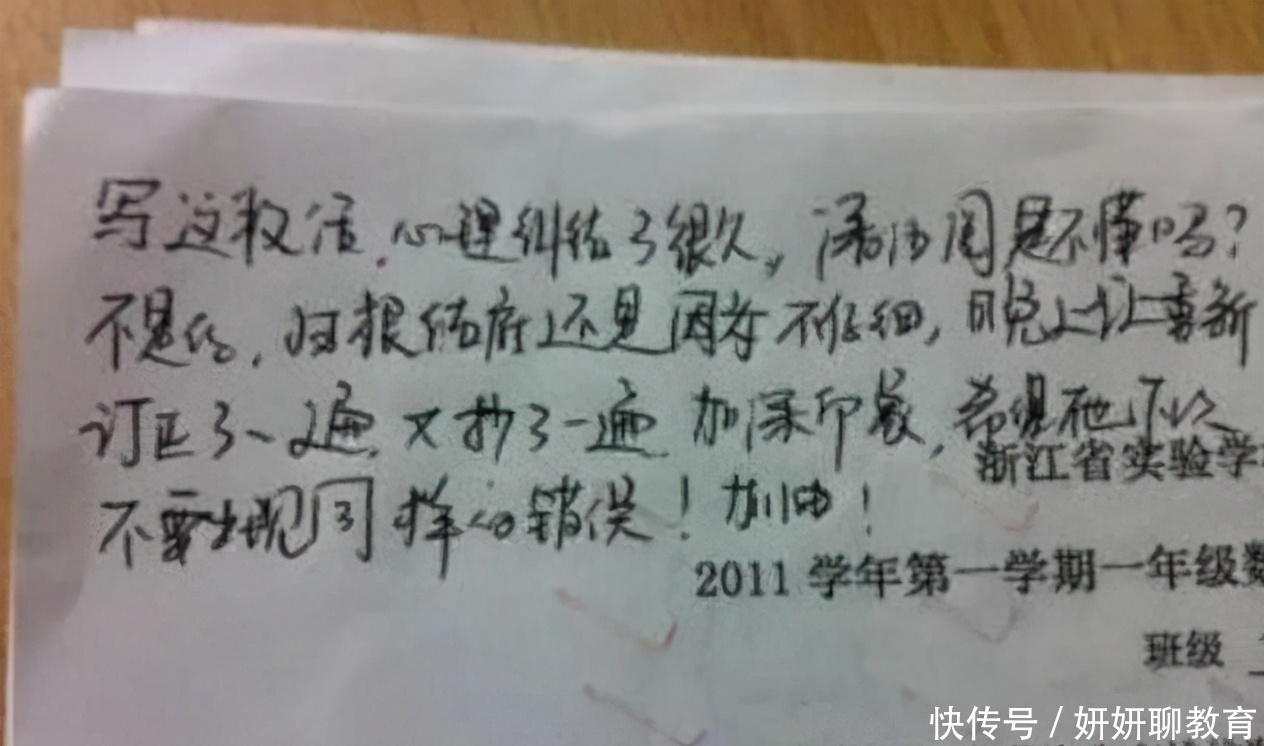 写这段话,心理纠结了很久,深深周是不懂吗?
不是的,归根结底还是因为不仔细,昨晚上让重新
订正了一遍,又抄了一遍 加深印象,希望他下次
不要出现同样的错误!加油!
浙江省实验学
2011 学年第一学期一年级数
班级
快传号 / 妍妍聊教育